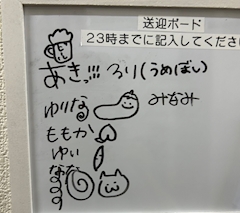 送迎ボード
23時までに記入してくださ
あきっ!!! ろり(うめばし)
ゆりな みなみ
ももか
ゆい
なな